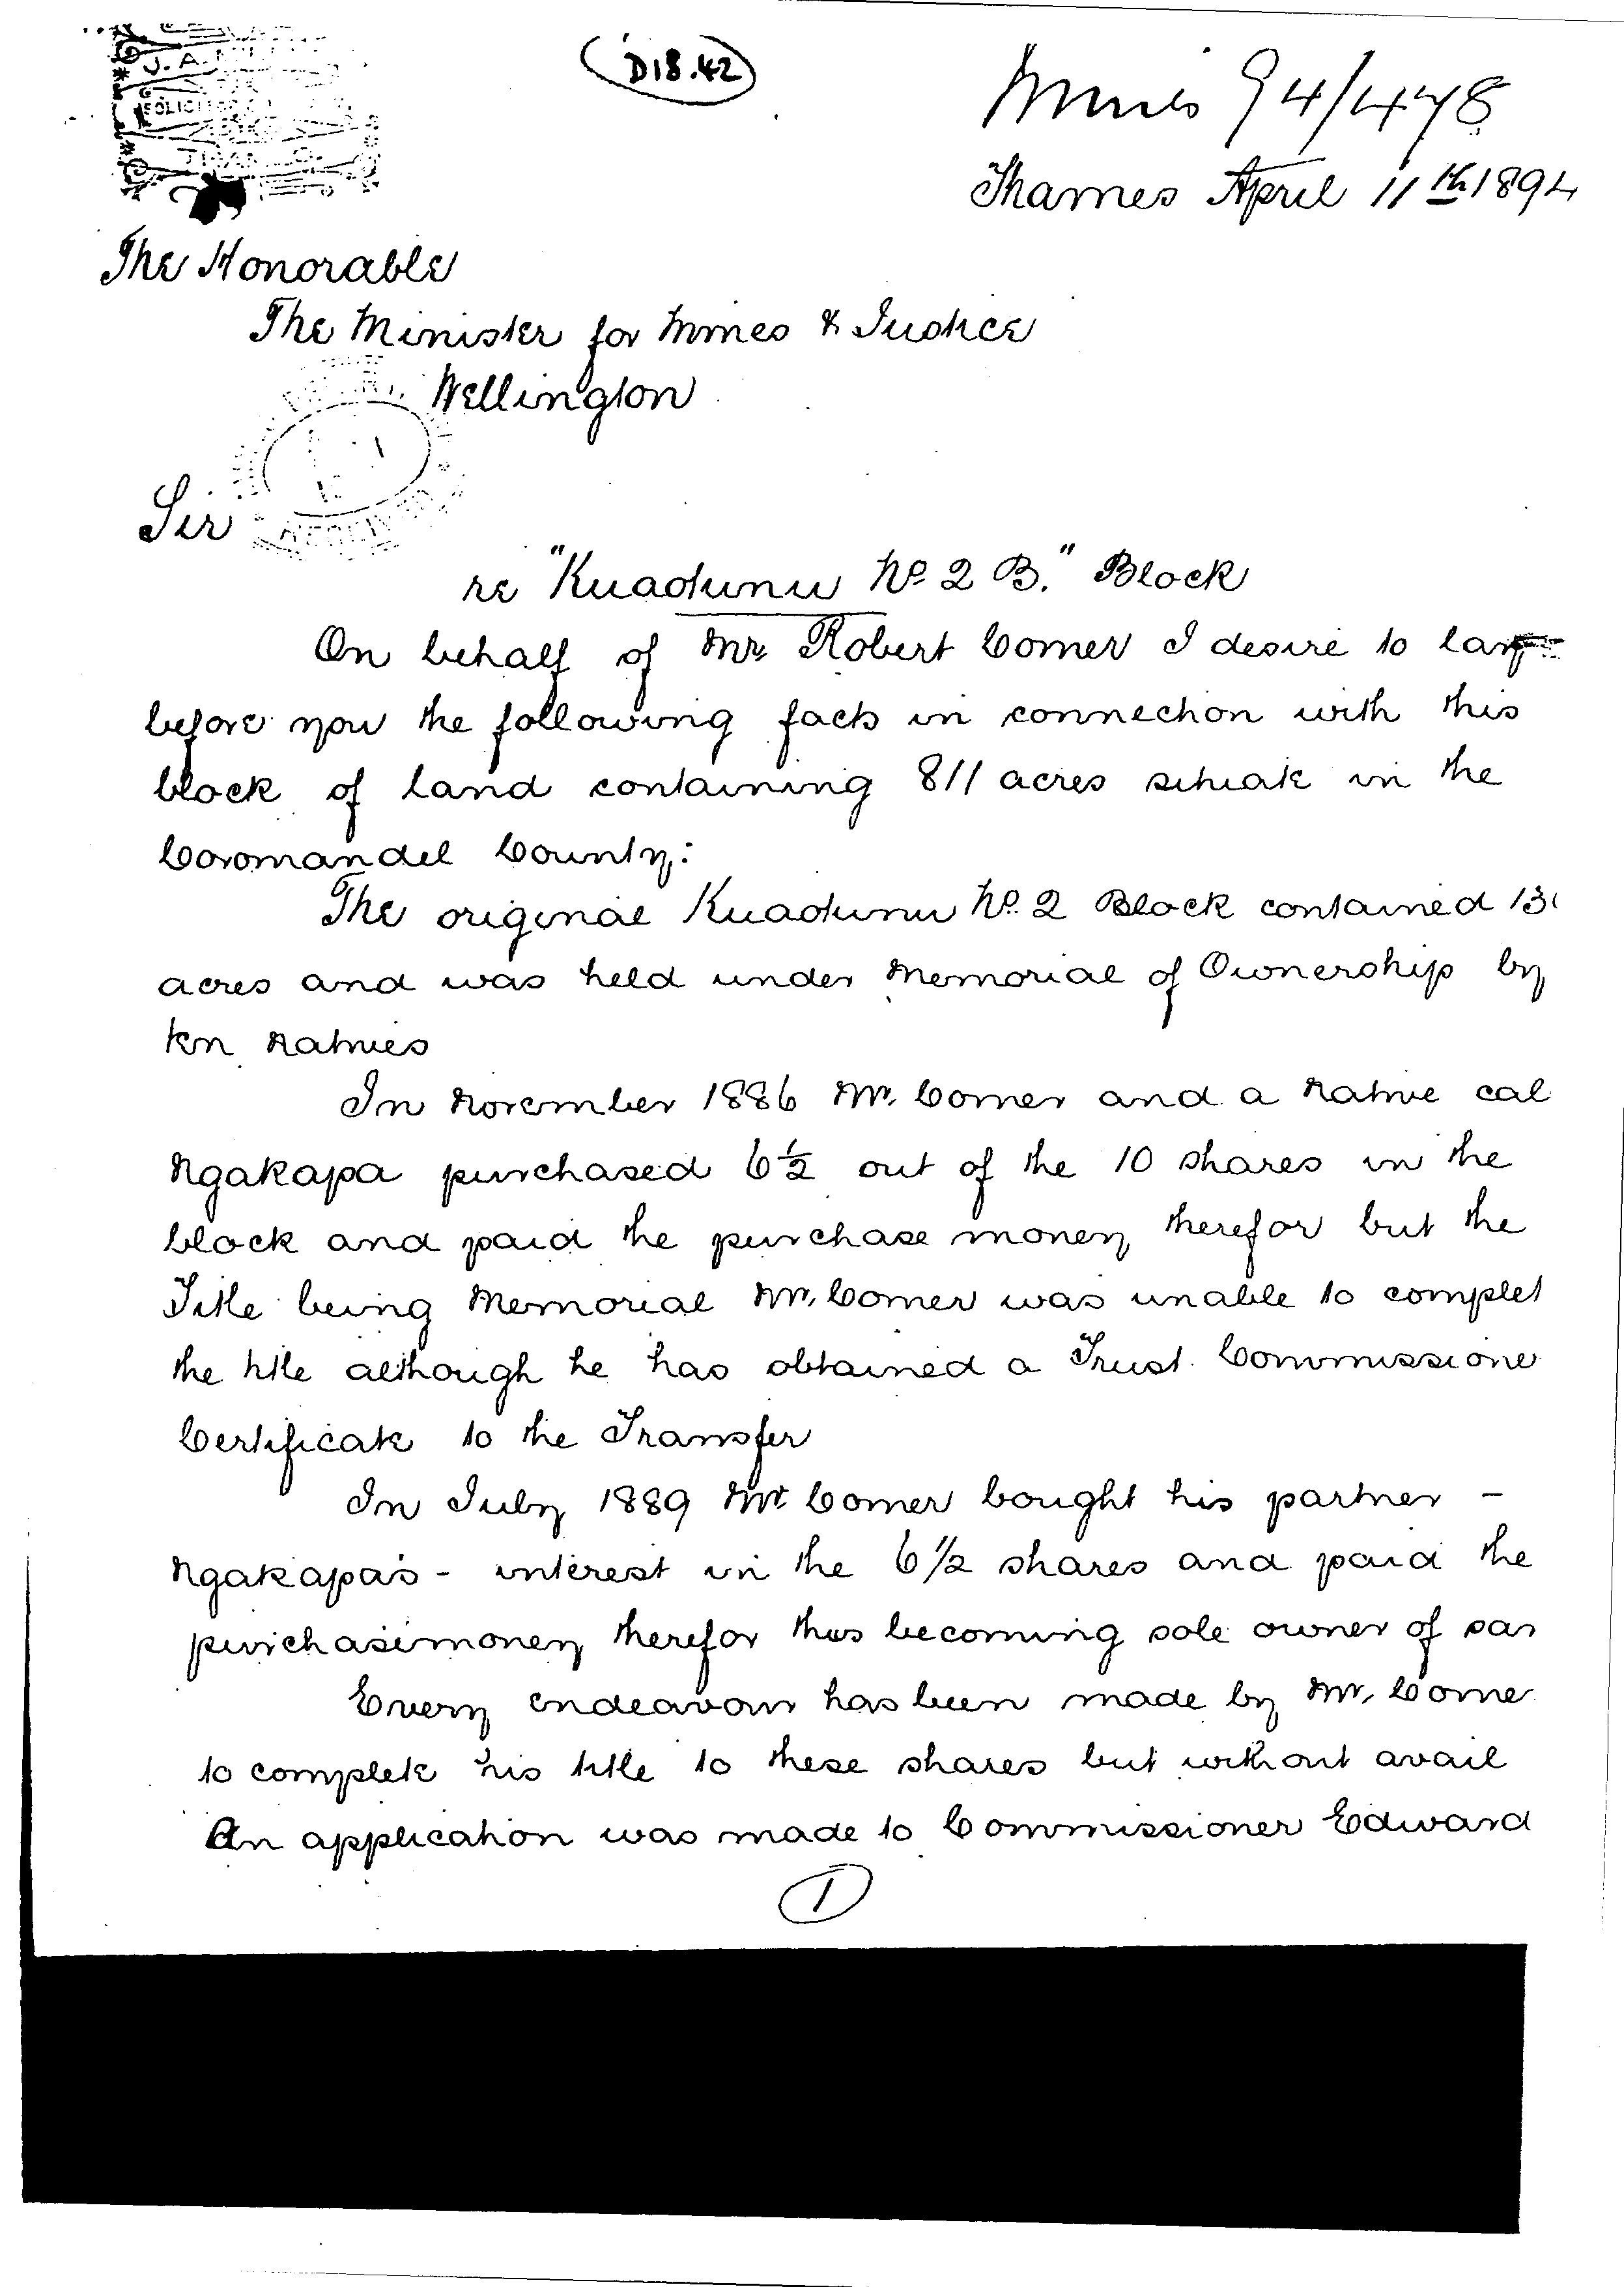 D18.42
Mines 94/478
J. A.
SOLICITOR
Thames April 11th 1894
The Honorable
The Minister for Mines & Justice
Wellington
Sir
re "Kuaotunu No. 2 B." Block
On behalf of Mr. Robert Comer I desire to lay
before you the following facts in connection with this
block of land containing 811 acres situate in the
Coromandel County:
The original Kuaotunu No. 2 Block contained
acres and was held under Memorial of Ownership by
ten Natives
In November 1886 Mr. Comer and a Native cal
Ngakapa purchased 6½ out of the 10 shares in the
block and paid the purchase money therefor but the
Title being Memorial Mr. Comer was unable to complet
the title although he has obtained a Trust Commissione
Certificate to the Transfer
In July 1889 Mr Comer bought his partner -
Ngakapa's - interest in the 6 1/2 shares and paid the
purchase money therefor thus becoming sole owner of
Every endeavour has been made by Mr. Come
to complete his title to these shares but without avail
An application was made to Commissioner Edward
1